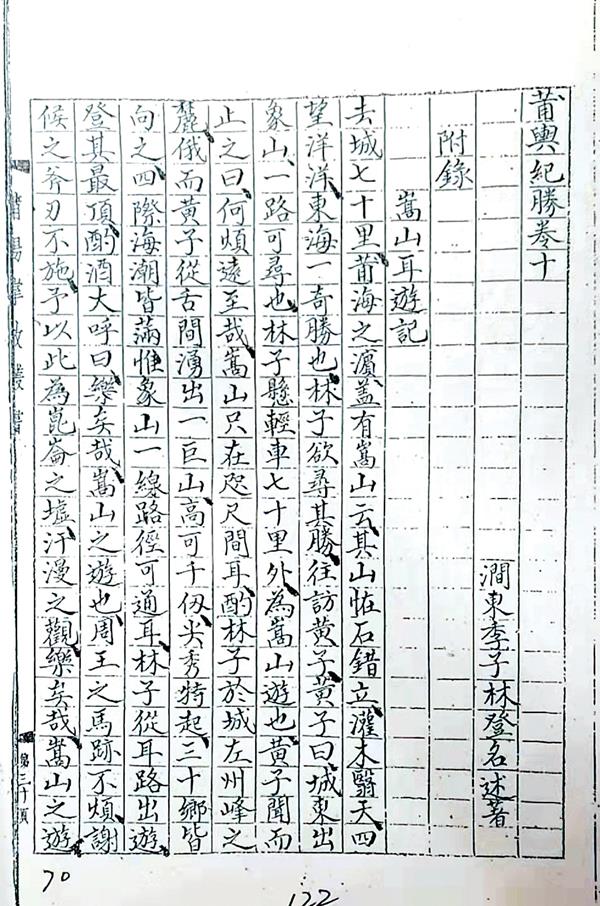 莆輿紀勝卷十
澗東季子林登名述著
附錄
嵩山耳遊記
去城七十里莆海之濵蓋有嵩山云其山恠石錯立灌木翳天四
望洋洋東海一奇勝也林子欲尋其勝往訪黄子黄子曰城東出
象山一路可尋也林子懸輕車七十里外為嵩山遊也黄子聞而
止之曰何煩遠至哉嵩山只在咫尺間耳酌林子於城左州峰之
麓俄而黄子從舌間湧出一巨山高可千仭尖秀特起三十鄉皆
向之四際海潮皆滿惟象山一線路徑可通耳林子從耳路出遊
登其最頂酌酒大呼曰樂矣哉嵩山之遊也周王之馬跡不煩謝
候之斧刃不施予以此為崑崙之墟汗漫之觀樂矣哉嵩山之遊
莆陽掌故叢書
第三十頁
70
122